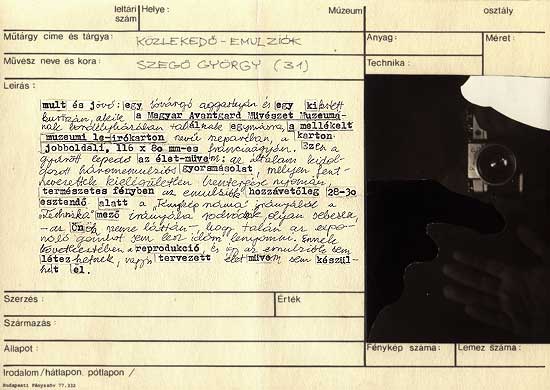 leltári szám
Helye :
Múzeum
osztály
Műtárgy címe és tárgya :
KÖZLEKEDŐ - EMULZIÓK
Anyag :
Méret :
Művész neve és kora :
SZEGŐ GYÖRGY (31)
Technika :
Leírás :
mult és jövő: egy sóvárgó aggastyán és egy kiéhett
kurtizán, akik a Magyar Avantgard Művészet Muzeumá-
nak bordélyházában találnak egymásra, a mellékelt
muzeumi le-irókarton nevű neparban, a karton
jobboldali, 116 x 80 mm-es franciaágyán. Ezen a
gyűrött lepedő az élet-művem: az általam kidol-
gozott háromemulziós gyorsmásolat, melyen fent-
nevezettek kielégületlen hentergése nyomán,
természetes fényben az emulziók hozzávetőleg 28-30
esztendő alatt a "Fénykép száma" irányából a
"Technika" mező irányába sodródnak olyan sebesen,
- az Önök szeme láttán -, hogy talán az expo-
náló gombot sem lesz időm lenyomni. Ennek
következtében a reprodukció, és így az emulziók sem
létezhetnek, vagyis tervezett életművem sem készül-
het el.
Szerzés :
Érték
Származás :
Állapot :
Fénykép száma :
Lemez száma :
Irodalom / hátlapon, pótlapon /
Budapesti Fényszöv 77.332